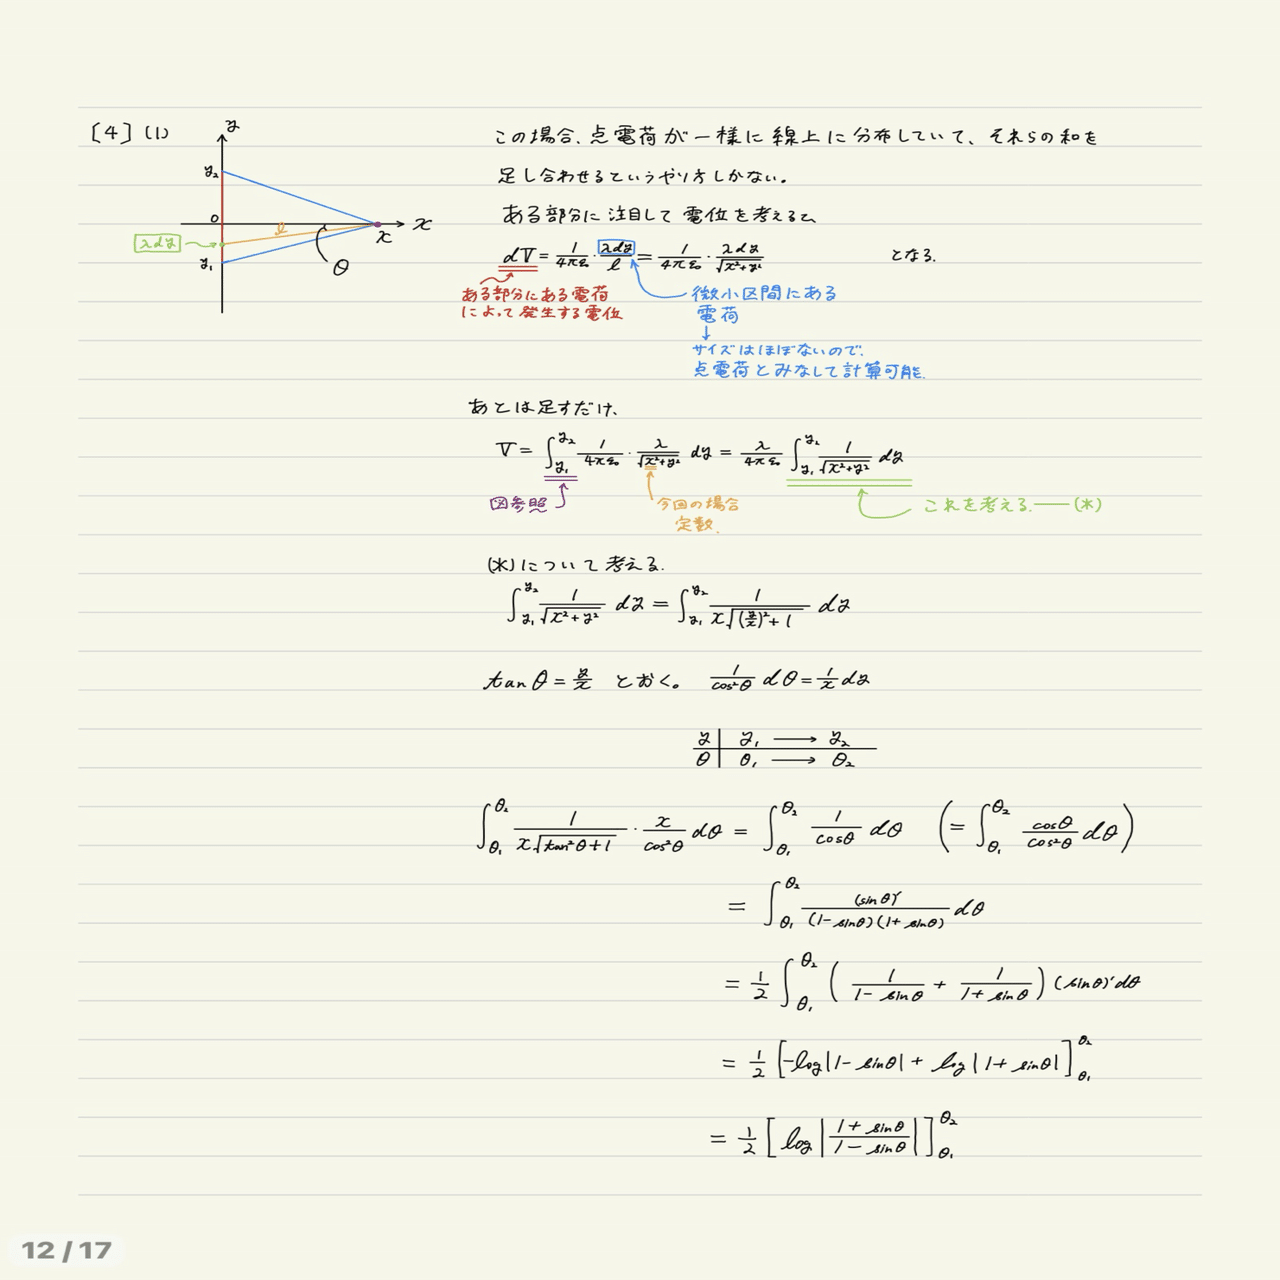 [4] (1)
y
y₂
0
l
x
x
λdy
y₁
θ
この場合、点電荷が一様に線上に分布していて、それらの和を
足し合わせるというやり方しかない。
ある部分に注目して電位を考えると、
dV = 1/4πε₀ · λdy/l = 1/4πε₀ · λdy/√(x²+y²) となる.
ある部分にある電荷
によって発生する電位
微小区間にある
電荷
↓
サイズはほぼないので、
点電荷とみなして計算可能.
あとは足すだけ、
V = ∫_{y₁}^{y₂} 1/4πε₀ · λ/√(x²+y²) dy = λ/4πε₀ ∫_{y₁}^{y₂} 1/√(x²+y²) dy
図参照
今回の場合
定数.
これを考える. ―― (*)
(*)について考える.
∫_{y₁}^{y₂} 1/√(x²+y²) dy = ∫_{y₁}^{y₂} 1/(x√((y/x)²+1)) dy
tanθ = y/x とおく。 1/cos²θ dθ = 1/x dy
y | y₁ → y₂
θ | θ₁ → θ₂
∫_{θ₁}^{θ₂} 1/(x√(tan²θ+1)) · x/cos²θ dθ = ∫_{θ₁}^{θ₂} 1/cosθ dθ (= ∫_{θ₁}^{θ₂} cosθ/cos²θ dθ)
= ∫_{θ₁}^{θ₂} (sinθ)'/((1-sinθ)(1+sinθ)) dθ
= 1/2 ∫_{θ₁}^{θ₂} (1/(1-sinθ) + 1/(1+sinθ)) (sinθ)' dθ
= 1/2 [-log|1-sinθ| + log|1+sinθ|]_{θ₁}^{θ₂}
= 1/2 [log|(1+sinθ)/(1-sinθ)|]_{θ₁}^{θ₂}
12 / 17